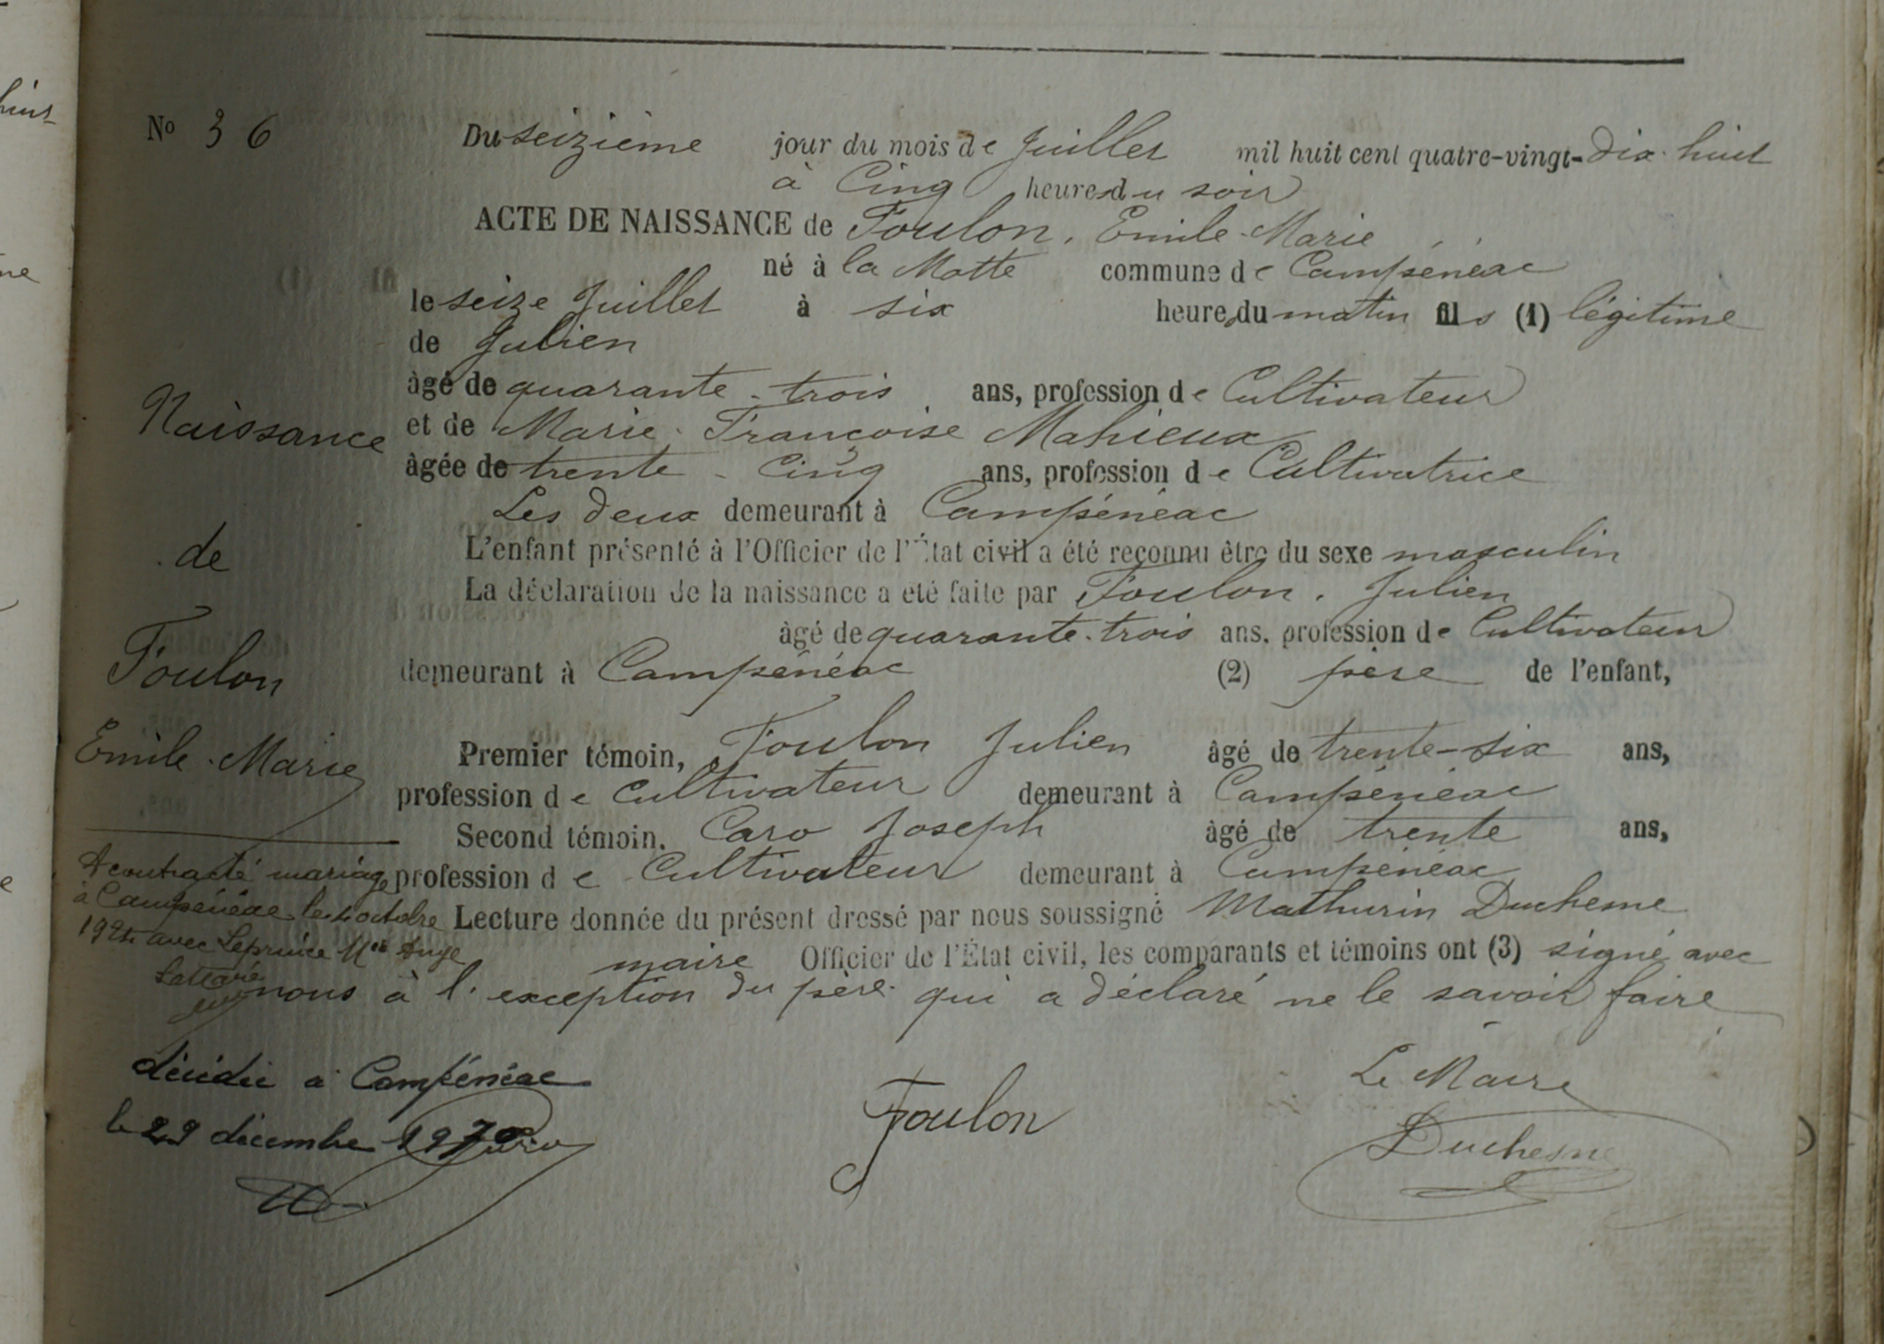 No 36
Du seizième jour du mois de Juillet mil huit cent quatre-vingt-dix-huit
à Cinq heures du soir
ACTE DE NAISSANCE de Foulon, Emile-Marie
né à la Motte commune de Campénéac
le seize Juillet à six heures du matin fils (1) légitime
de Julien
âgé de quarante-trois ans, profession de Cultivateur
et de Marie-Françoise Mahieux
âgée de trente-cinq ans, profession de Cultivatrice
Les deux demeurant à Campénéac
L'enfant présenté à l'Officier de l'État civil a été reconnu être du sexe masculin
La déclaration de la naissance a été faite par Foulon, Julien
âgé de quarante-trois ans, profession de Cultivateur
demeurant à Campénéac (2) père de l'enfant,
Premier témoin, Foulon Julien âgé de trente-six ans,
profession de Cultivateur demeurant à Campénéac
Second témoin, Caro Joseph âgé de trente ans,
profession de Cultivateur demeurant à Campénéac
Lecture donnée du présent dressé par nous soussigné Mathurin Duchesne
maire Officier de l'État civil, les comparants et témoins ont (3) signé avec
nous à l'exception du père qui a déclaré ne le savoir faire
Le Maire
Foulon
Duchesne
Caro
Naissance
de
Foulon
Emile-Marie
A contracté mariage
à Campénéac le octobre
1924 avec Leprince Mie Ange
décédé à Campénéac
le 29 décembre